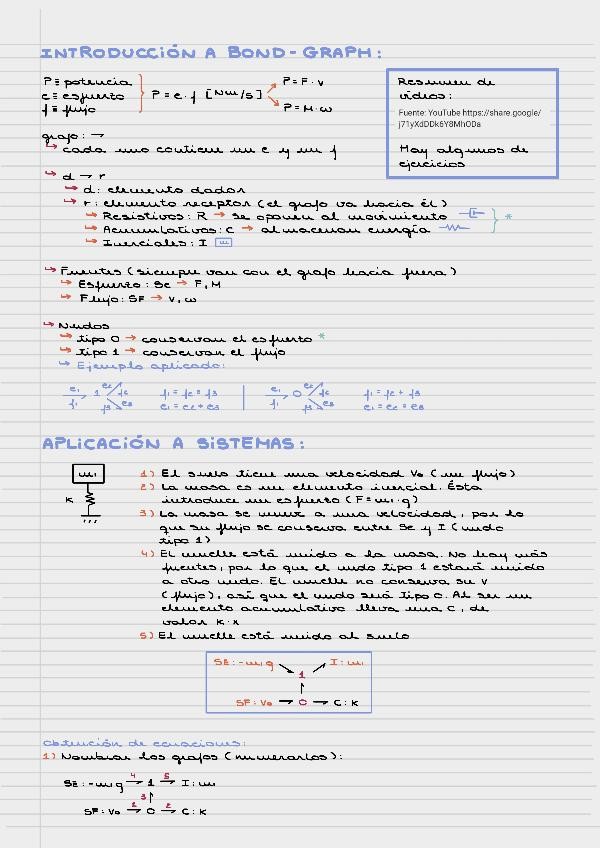 INTRODUCCIÓN A BOND-GRAPH:
P ≡ potencia
e ≡ esfuerzo
f ≡ flujo
P = e · f [Nm/s]
P = F · v
P = M · ω
Resumen de
vídeos:
Fuente: YouTube https://share.google/
j71yXdDDk6Y8MhODa
Hay algunos de
ejercicios
grafo: →
↳ cada uno contiene un e y un f
↳ d → r
↳ d: elemento dador
↳ r: elemento receptor (el grafo va hacia él)
↳ Resistivos: R → se oponen al movimiento
↳ Acumulativos: C → almacenan energía
*
↳ Inerciales: I m
↳ Fuentes (siempre van con el grafo hacia fuera)
↳ Esfuerzo: Se → F, M
↳ Flujo: SF → V, ω
↳ Nudos
↳ tipo 0 → conservan el esfuerzo *
↳ tipo 1 → conservan el flujo
↳ Ejemplo aplicado:
e₁ f₁ 1 e₂ f₂ f₃ e₃ f₁ = f₂ = f₃ e₁ = e₂ + e₃
e₁ f₁ 0 e₂ f₂ f₃ e₃ f₁ = f₂ + f₃ e₁ = e₂ = e₃
APLICACIÓN A SISTEMAS:
m₁
K
1) El suelo tiene una velocidad V₀ (un flujo)
2) La masa es un elemento inercial. Ésta
introduce un esfuerzo (F = m₁·g)
3) La masa se mueve a una velocidad, por lo
que su flujo se conserva entre Se y I (nudo
tipo 1)
4) El muelle está unido a la masa. No hay más
fuentes, por lo que el nudo tipo 1 estará unido
a otro nudo. El muelle no conserva su v
(flujo), así que el nudo será tipo 0. Al ser un
elemento acumulativo lleva una C, de
valor K·x
5) El muelle está unido al suelo
SE: -m₁g → 1 → I: m₁
↑
SF: V₀ → 0 → C: K
Obtención de ecuaciones:
1) Nombrar los grafos (numerarlos):
SE: -m₁g 4→ 1 5→ I: m
3↑
SF: V₀ 1→ 0 2→ C: K